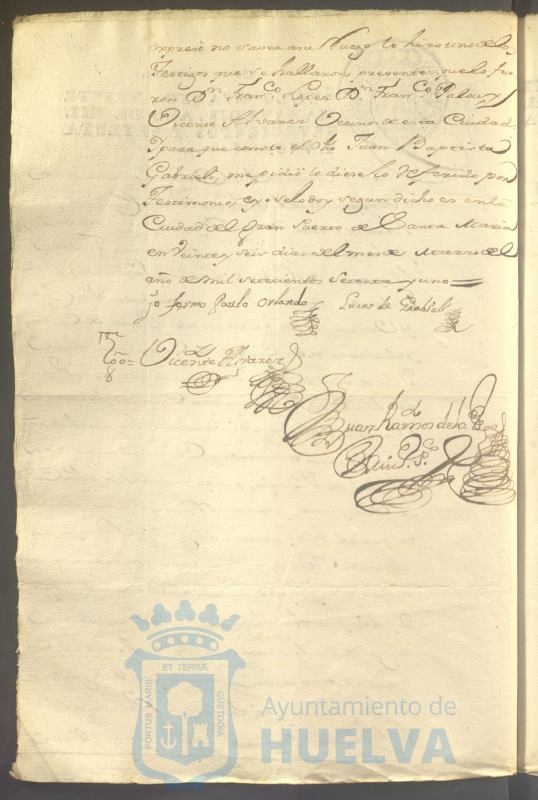 expresó no saver a su Ruego lo hizo uno de los
Testigos que se hallaron presentes que lo fue
ron Dn. Franco. Lopez Dn. Franco. Palau y
Vicente Alvarez Vecinos de esta Ciudad
Y para que conste el dho Juan Baptista
Gabrieli, me pidió le diese lo referido por
Testimonio, y yo se lo doy segun dicho es en la
Ciudad del Gran Puerto de Santa Maria
en Veinte y seis dias del mes de Marzo del
año de mil setecientos setenta y uno =
jo fermo Paulo Orlando Lucas de Gabrieli
Tgo = Vicente Alvarez
Juan Ramos de la
ET TERRÆ
PORTUS MARIS
CUSTODIA
Ayuntamiento de
HUELVA